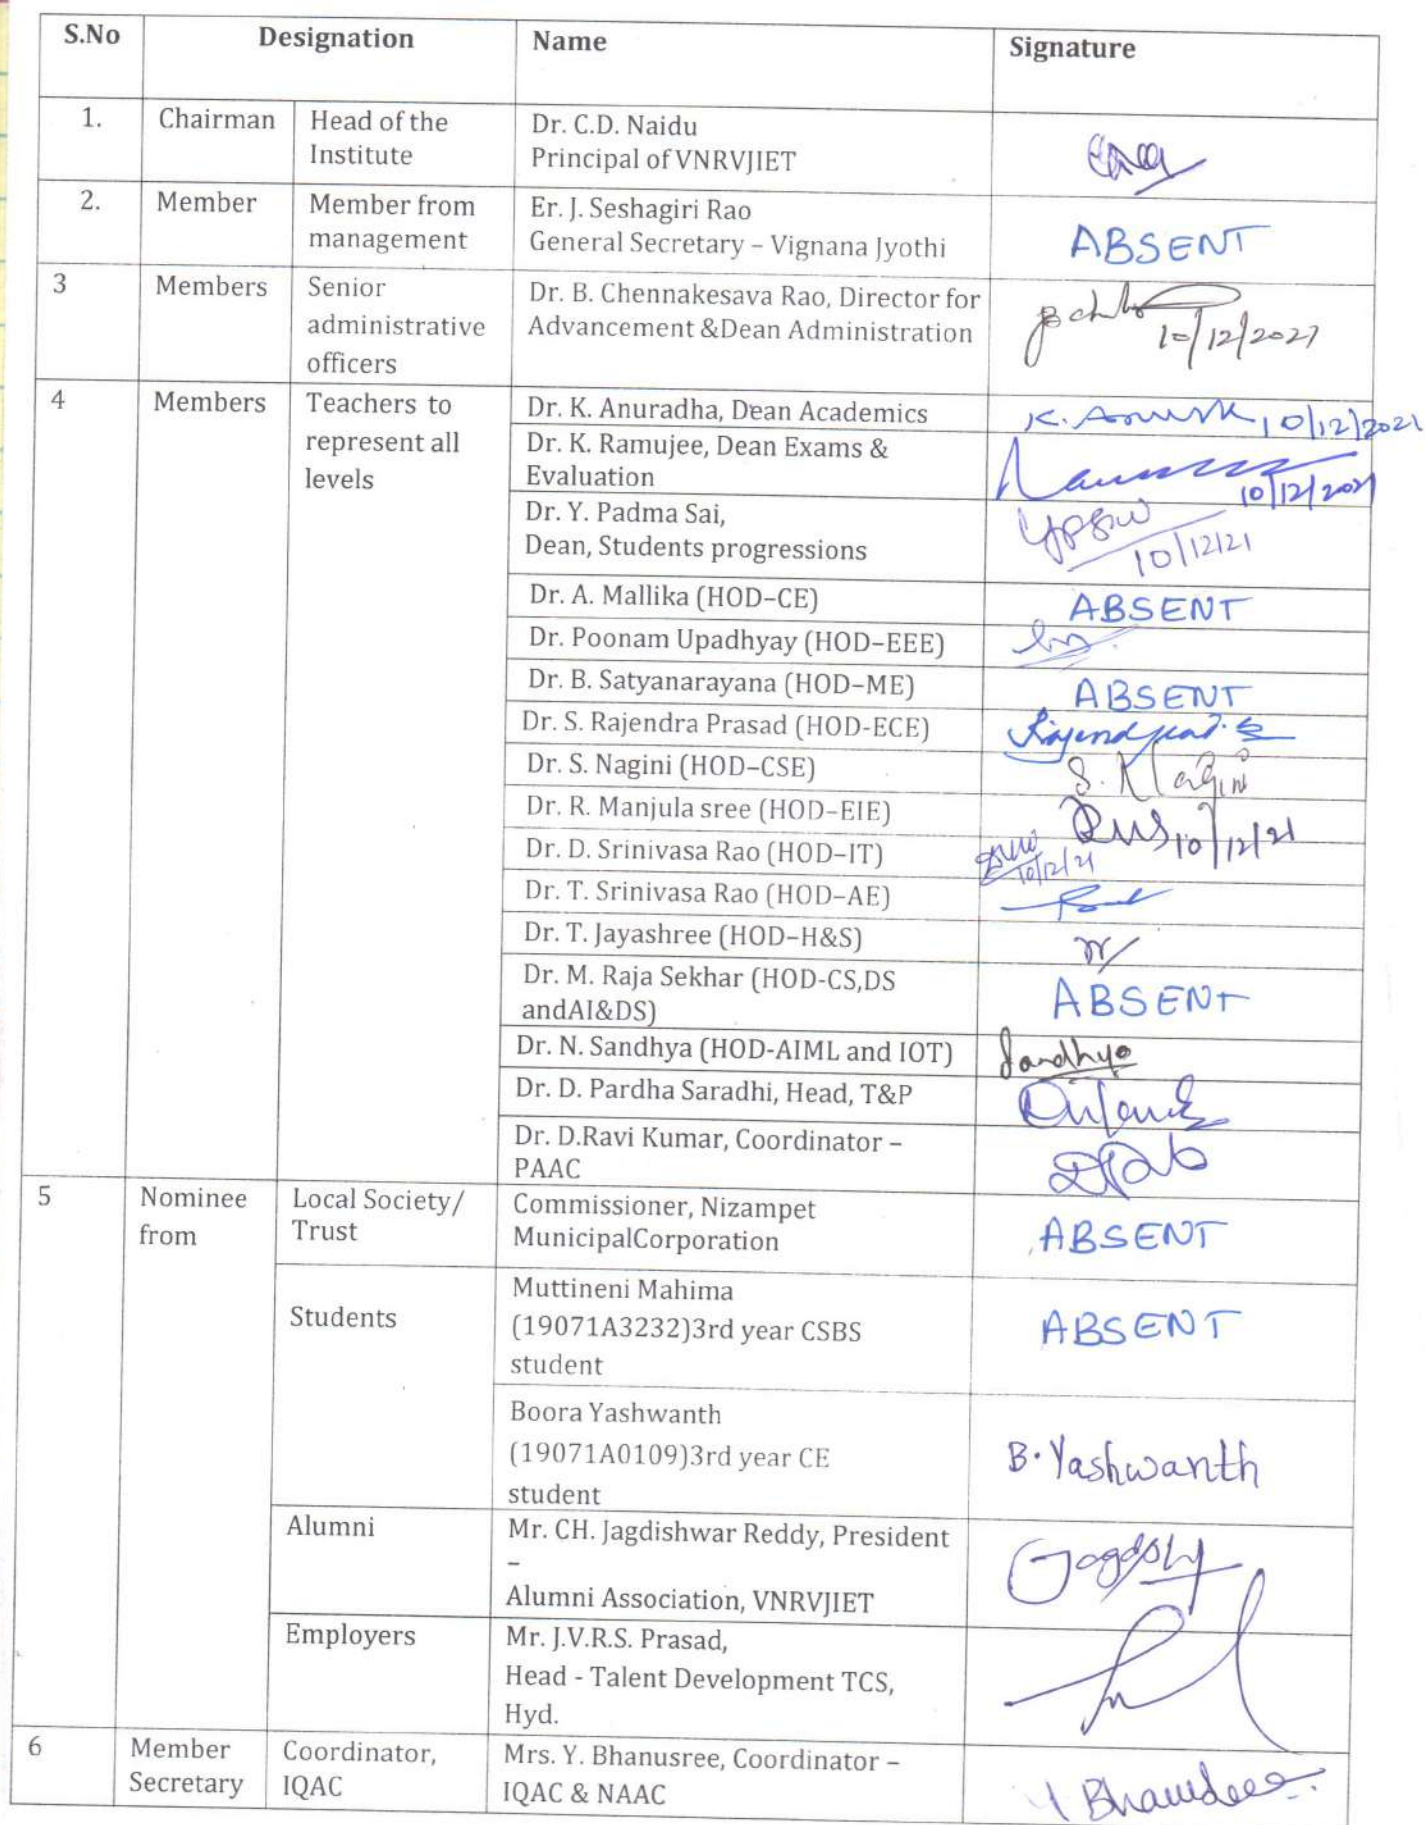 S.No Designation Name Signature
1. Chairman Head of the Dr. C.D. Naidu
Institute Principal of VNRVJIET
2. Member Member from Er. J. Seshagiri Rao
management General Secretary – Vignana Jyothi ABSENT
3 Members Senior Dr. B. Chennakesava Rao, Director for
administrative Advancement &Dean Administration 10/12/2021
officers
4 Members Teachers to Dr. K. Anuradha, Dean Academics K. 10/12/2021
represent all Dr. K. Ramujee, Dean Exams &
levels Evaluation 10/12/2021
Dr. Y. Padma Sai,
Dean, Students progressions 10/12/21
Dr. A. Mallika (HOD–CE) ABSENT
Dr. Poonam Upadhyay (HOD–EEE)
Dr. B. Satyanarayana (HOD–ME) ABSENT
Dr. S. Rajendra Prasad (HOD-ECE)
Dr. S. Nagini (HOD–CSE) S. Nagini
Dr. R. Manjula sree (HOD–EIE) 10/12/21
Dr. D. Srinivasa Rao (HOD–IT) 10/12/21
Dr. T. Srinivasa Rao (HOD–AE)
Dr. T. Jayashree (HOD–H&S)
Dr. M. Raja Sekhar (HOD-CS,DS
andAI&DS) ABSENT
Dr. N. Sandhya (HOD-AIML and IOT) Sandhya
Dr. D. Pardha Saradhi, Head, T&P
Dr. D.Ravi Kumar, Coordinator –
PAAC
5 Nominee Local Society/ Commissioner, Nizampet
from Trust MunicipalCorporation ABSENT
Muttineni Mahima
Students (19071A3232)3rd year CSBS ABSENT
student
Boora Yashwanth
(19071A0109)3rd year CE B. Yashwanth
student
Alumni Mr. CH. Jagdishwar Reddy, President
–
Alumni Association, VNRVJIET
Employers Mr. J.V.R.S. Prasad,
Head - Talent Development TCS,
Hyd.
6 Member Coordinator, Mrs. Y. Bhanusree, Coordinator –
Secretary IQAC IQAC & NAAC